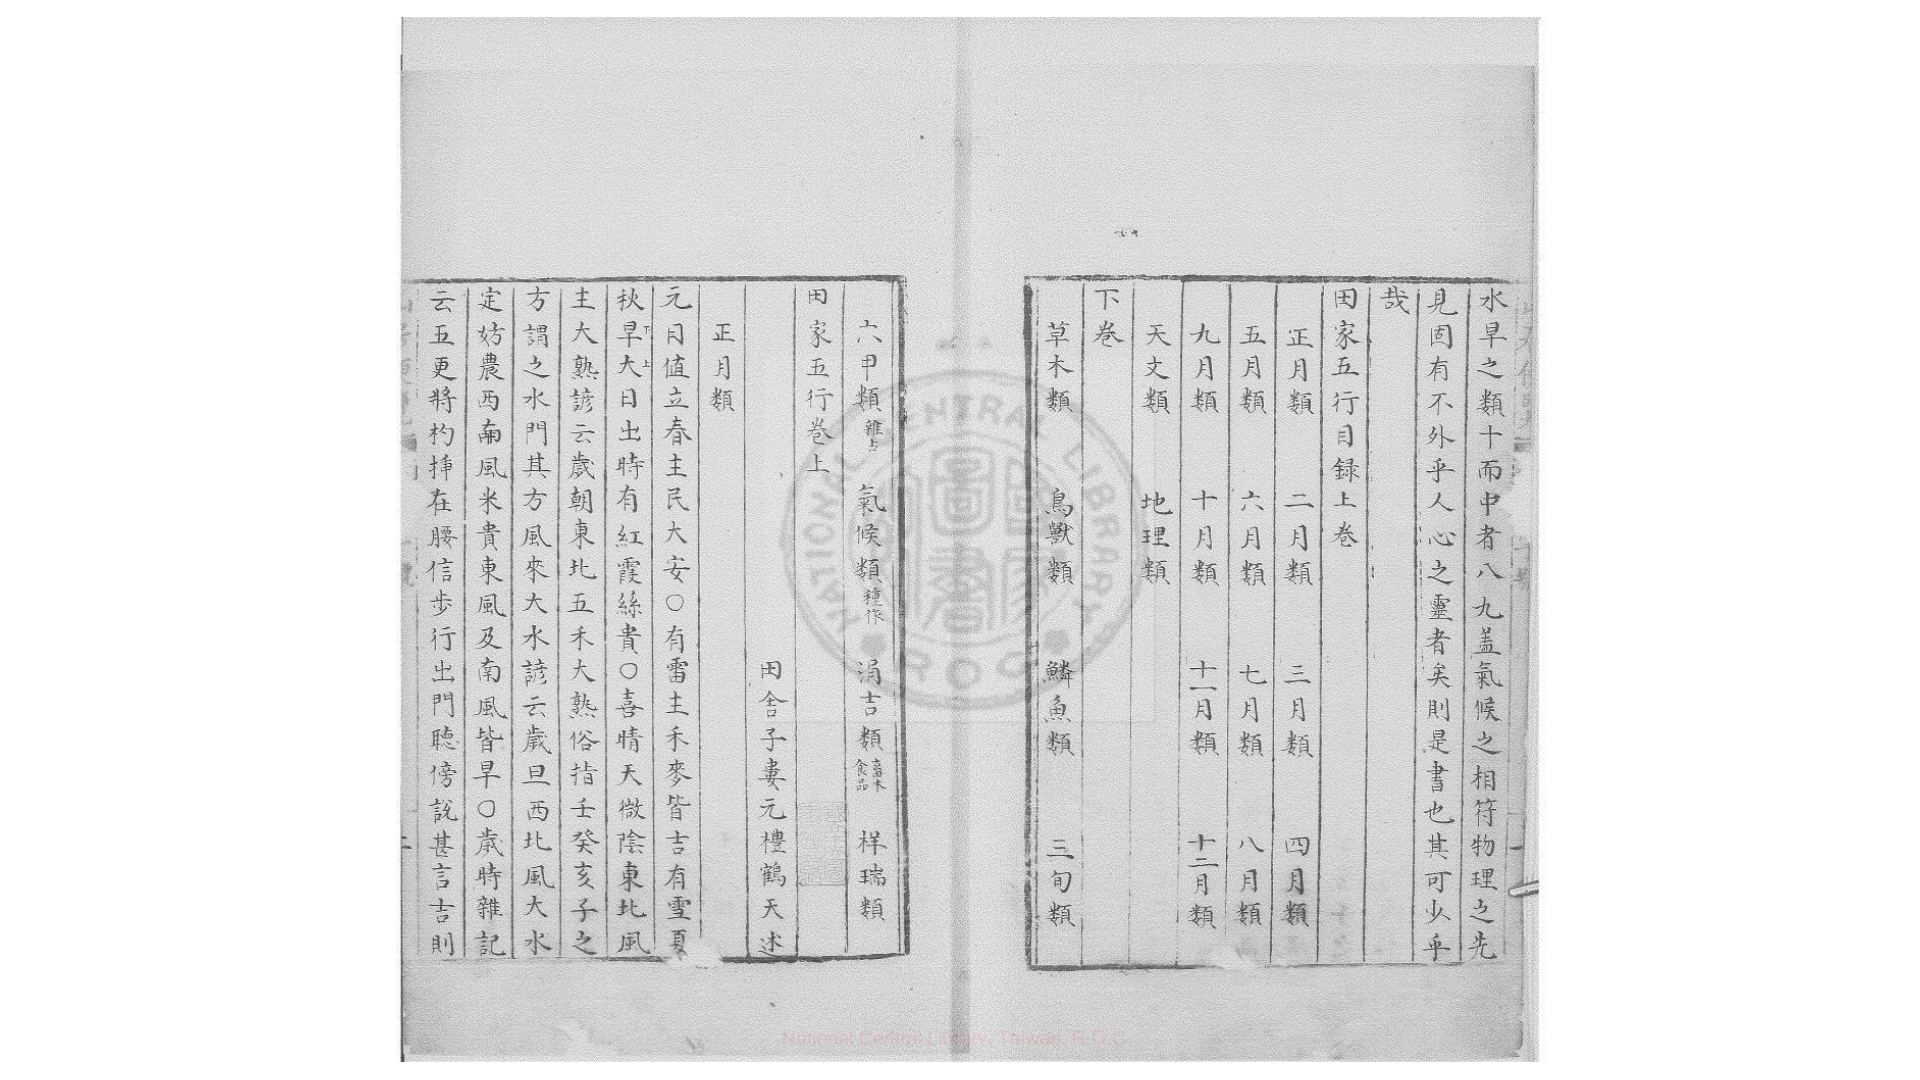 水旱之類十而中者八九盖氣候之相符物理之先
見固有不外乎人心之靈者矣則是書也其可少乎
哉
田家五行目録上卷
正月類 二月類 三月類 四月類
五月類 六月類 七月類 八月類
九月類 十月類 十一月類 十二月類
天文類 地理類
下卷
草木類 鳥獸類 鱗魚類 三旬類
六甲類雜占 氣候類種作 涓吉類畜木食品 祥瑞類
田家五行卷上
田舍子婁元禮鶴天述
正月類
元日值立春主民大安○有雷主禾麥皆吉有雪夏
秋旱大日出時有紅霞絲貴○喜晴天微陰東北風
主大熟諺云歲朝東北五禾大熟俗指壬癸亥子之
方謂之水門其方風來大水諺云歲旦西北風大水
定妨農西南風米貴東風及南風皆旱○歲時雜記
云五更將杓揷在腰信步行出門聽傍說甚言吉則
NATIONAL CENTRAL LIBRARY
ROC
National Central Library, Taiwan, R.O.C